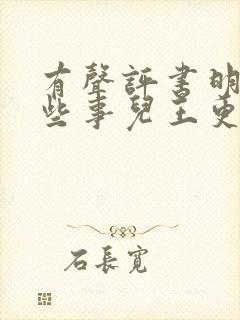 有聲評書明
些事兒王更
石長寬